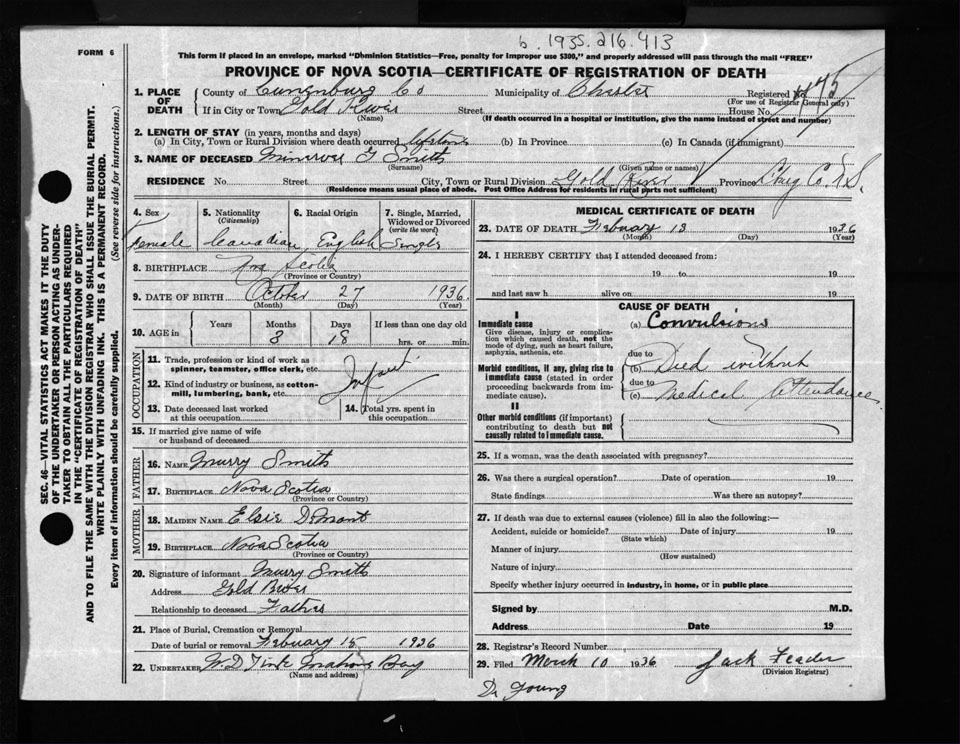 b. 1935.216.413
FORM 6
This form if placed in an envelope, marked "Dominion Statistics—Free, penalty for improper use $300," and properly addressed will pass through the mail "FREE"
PROVINCE OF NOVA SCOTIA—CERTIFICATE OF REGISTRATION OF DEATH
1. PLACE OF DEATH County of Lunenburg Co Municipality of Chester Registered No.
(For use of Registrar General only)
If in City or Town Gold River Street House No.
(Name) (If death occurred in a hospital or institution, give the name instead of street and number)
2. LENGTH OF STAY (in years, months and days)
(a) In City, Town or Rural Division where death occurred (b) In Province (c) In Canada (if immigrant)
3. NAME OF DECEASED Minerva G Smith
(Surname) (Given name or names)
RESIDENCE No. Street City, Town or Rural Division Gold River Province Co N.S.
(Residence means usual place of abode. Post Office Address for residents in rural parts not sufficient)
4. Sex 5. Nationality (Citizenship) 6. Racial Origin 7. Single, Married, Widowed or Divorced (write the word)
female Canadian English Single
8. BIRTHPLACE Nova Scotia
(Province or Country)
9. DATE OF BIRTH October 27 1936
(Month) (Day) (Year)
10. AGE in Years Months Days If less than one day old
3 18 hrs. or min.
OCCUPATION
11. Trade, profession or kind of work as spinner, teamster, office clerk, etc.
Infant
12. Kind of industry or business, as cotton-mill, lumbering, bank, etc.
13. Date deceased last worked at this occupation 14. Total yrs. spent in this occupation
15. If married give name of wife or husband of deceased
FATHER
16. NAME Murry Smith
17. BIRTHPLACE Nova Scotia
(Province or Country)
MOTHER
18. MAIDEN NAME Elsie DeMont
19. BIRTHPLACE Nova Scotia
(Province or Country)
20. Signature of informant Murry Smith
Address Gold River
Relationship to deceased Father
21. Place of Burial, Cremation or Removal
Date of burial or removal February 15 1936
22. UNDERTAKER W D Mahone Bay
(Name and address)
MEDICAL CERTIFICATE OF DEATH
23. DATE OF DEATH February 13 1936
(Month) (Day) (Year)
24. I HEREBY CERTIFY that I attended deceased from:
19 to 19
and last saw h alive on 19
CAUSE OF DEATH
I
Immediate cause (a) Convulsions
Give disease, injury or complication which caused death, not the mode of dying, such as heart failure, asphyxia, asthenia, etc.
due to
Morbid conditions, if any, giving rise to immediate cause (stated in order proceeding backwards from immediate cause).
(b) Died without
due to
(c) Medical Attendance
II
Other morbid conditions (if important) contributing to death but not causally related to immediate cause.
25. If a woman, was the death associated with pregnancy?
26. Was there a surgical operation? Date of operation 19
State findings Was there an autopsy?
27. If death was due to external causes (violence) fill in also the following:—
Accident, suicide or homicide? Date of injury 19
(State which)
Manner of injury
(How sustained)
Nature of injury
Specify whether injury occurred in industry, in home, or in public place
Signed by M.D.
Address Date 19
28. Registrar's Record Number
29. Filed March 10 1936 Jack Feader
(Division Registrar)
Dr Young
SEC. 46—VITAL STATISTICS ACT MAKES IT THE DUTY
OF THE UNDERTAKER OR PERSON ACTING AS UNDER-
TAKER TO OBTAIN ALL THE PARTICULARS REQUIRED
IN THE "CERTIFICATE OF REGISTRATION OF DEATH"
AND TO FILE THE SAME WITH THE DIVISION REGISTRAR WHO SHALL ISSUE THE BURIAL PERMIT.
WRITE PLAINLY WITH UNFADING INK. THIS IS A PERMANENT RECORD.
Every item of information should be carefully supplied. (See reverse side for instructions.)